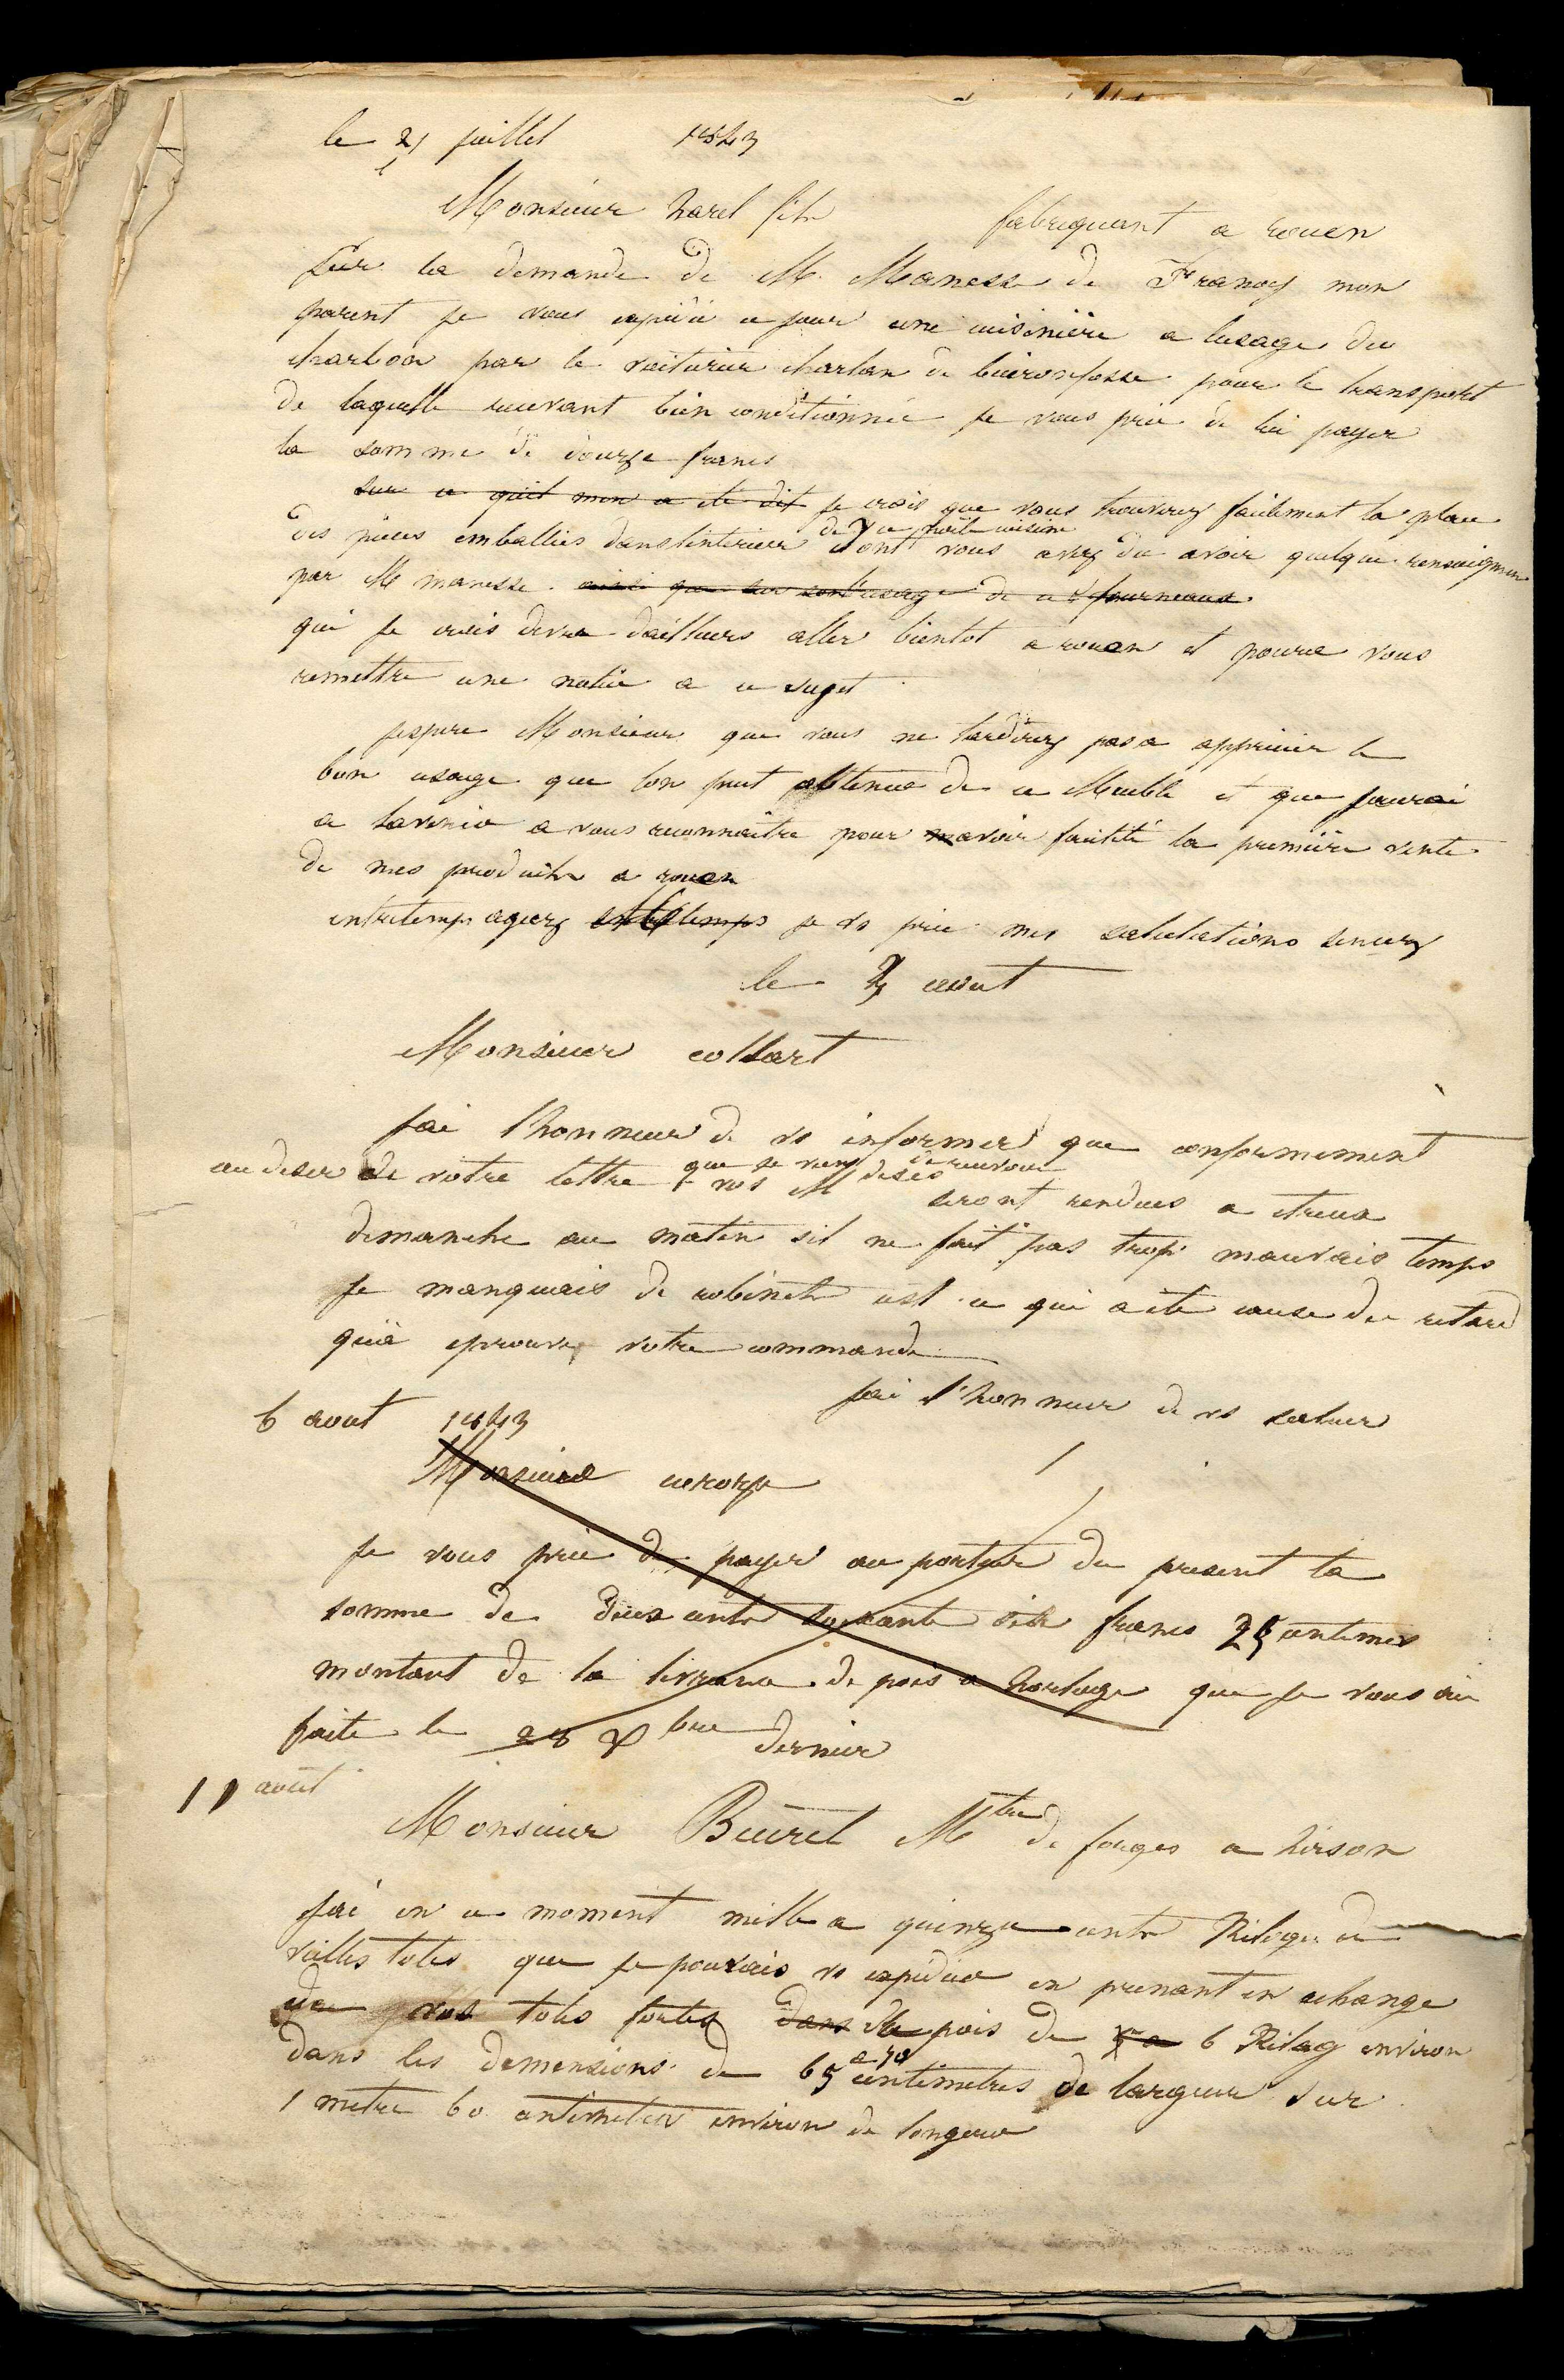 le 21 juillet 1843
Monsieur harel fils fabriquant a rouen
sur la demande de M. Manesse de Franoy mon
parent je vous expédie ce jour une cuisinière a lusage du
charbon par le voiturier charlan de buironfosse pour le transport
de laquelle recevant bien conditionnée je vous prie de lui payer
la somme de douze francs
sur ce quil men a ete dit je crois que vous trouverez facilement la place
des pièces emballées dans linterieur de ce poële cuisine dont vous avez du avoir quelque renseignem
par M manesse. ainsi que sur son usage de ce fourneaux.
qui je crois devra dailleurs aller bientot a rouen et poura vous
remettre une notice a ce suget
jespere Monsieur que vous ne tarderez pas a apprecier le
bon usage que lon peut obtenir de ce Meuble et que jaurai
a lavenir a vous reconnaître pour mavoir facilité la première vente
de mes produits a rouen
entretemps agreez entretemps je vs prie mes salutations sincers
le 3 aout
Monsieur collart
jai lhonneur de vs informer que conformement
au desir de votre lettre que je viens de recevoir vos M dises seront rendues a etreux
dimanche au matin sil ne fait pas trop mauvais temps
je manquais de robinets cest ce qui a ete cause du retard
qu'à eprouvé votre commande
jai l'honneur de vs saluer
6 aout 1843
Monsieur
je vous prie de payer au porteur du present la
somme de deux cents soixante dix francs 25 centimes
montant de la livrance de pois a houlage que je vous ai
faite le 28 Xbre dernier
11 aout
Monsieur Beuret Mtre de forges a hirson
jai en ce moment mille a quinze cents Kilog. de
vielles toles que je pourais vs expedier en prenant en echange
de vos toles fortes dans de pois de 5 a 6 Kilag environ
dans les demensions de 65 a 70 centimetres de largeur sur
1 metre 60 centimetres environ de longueur